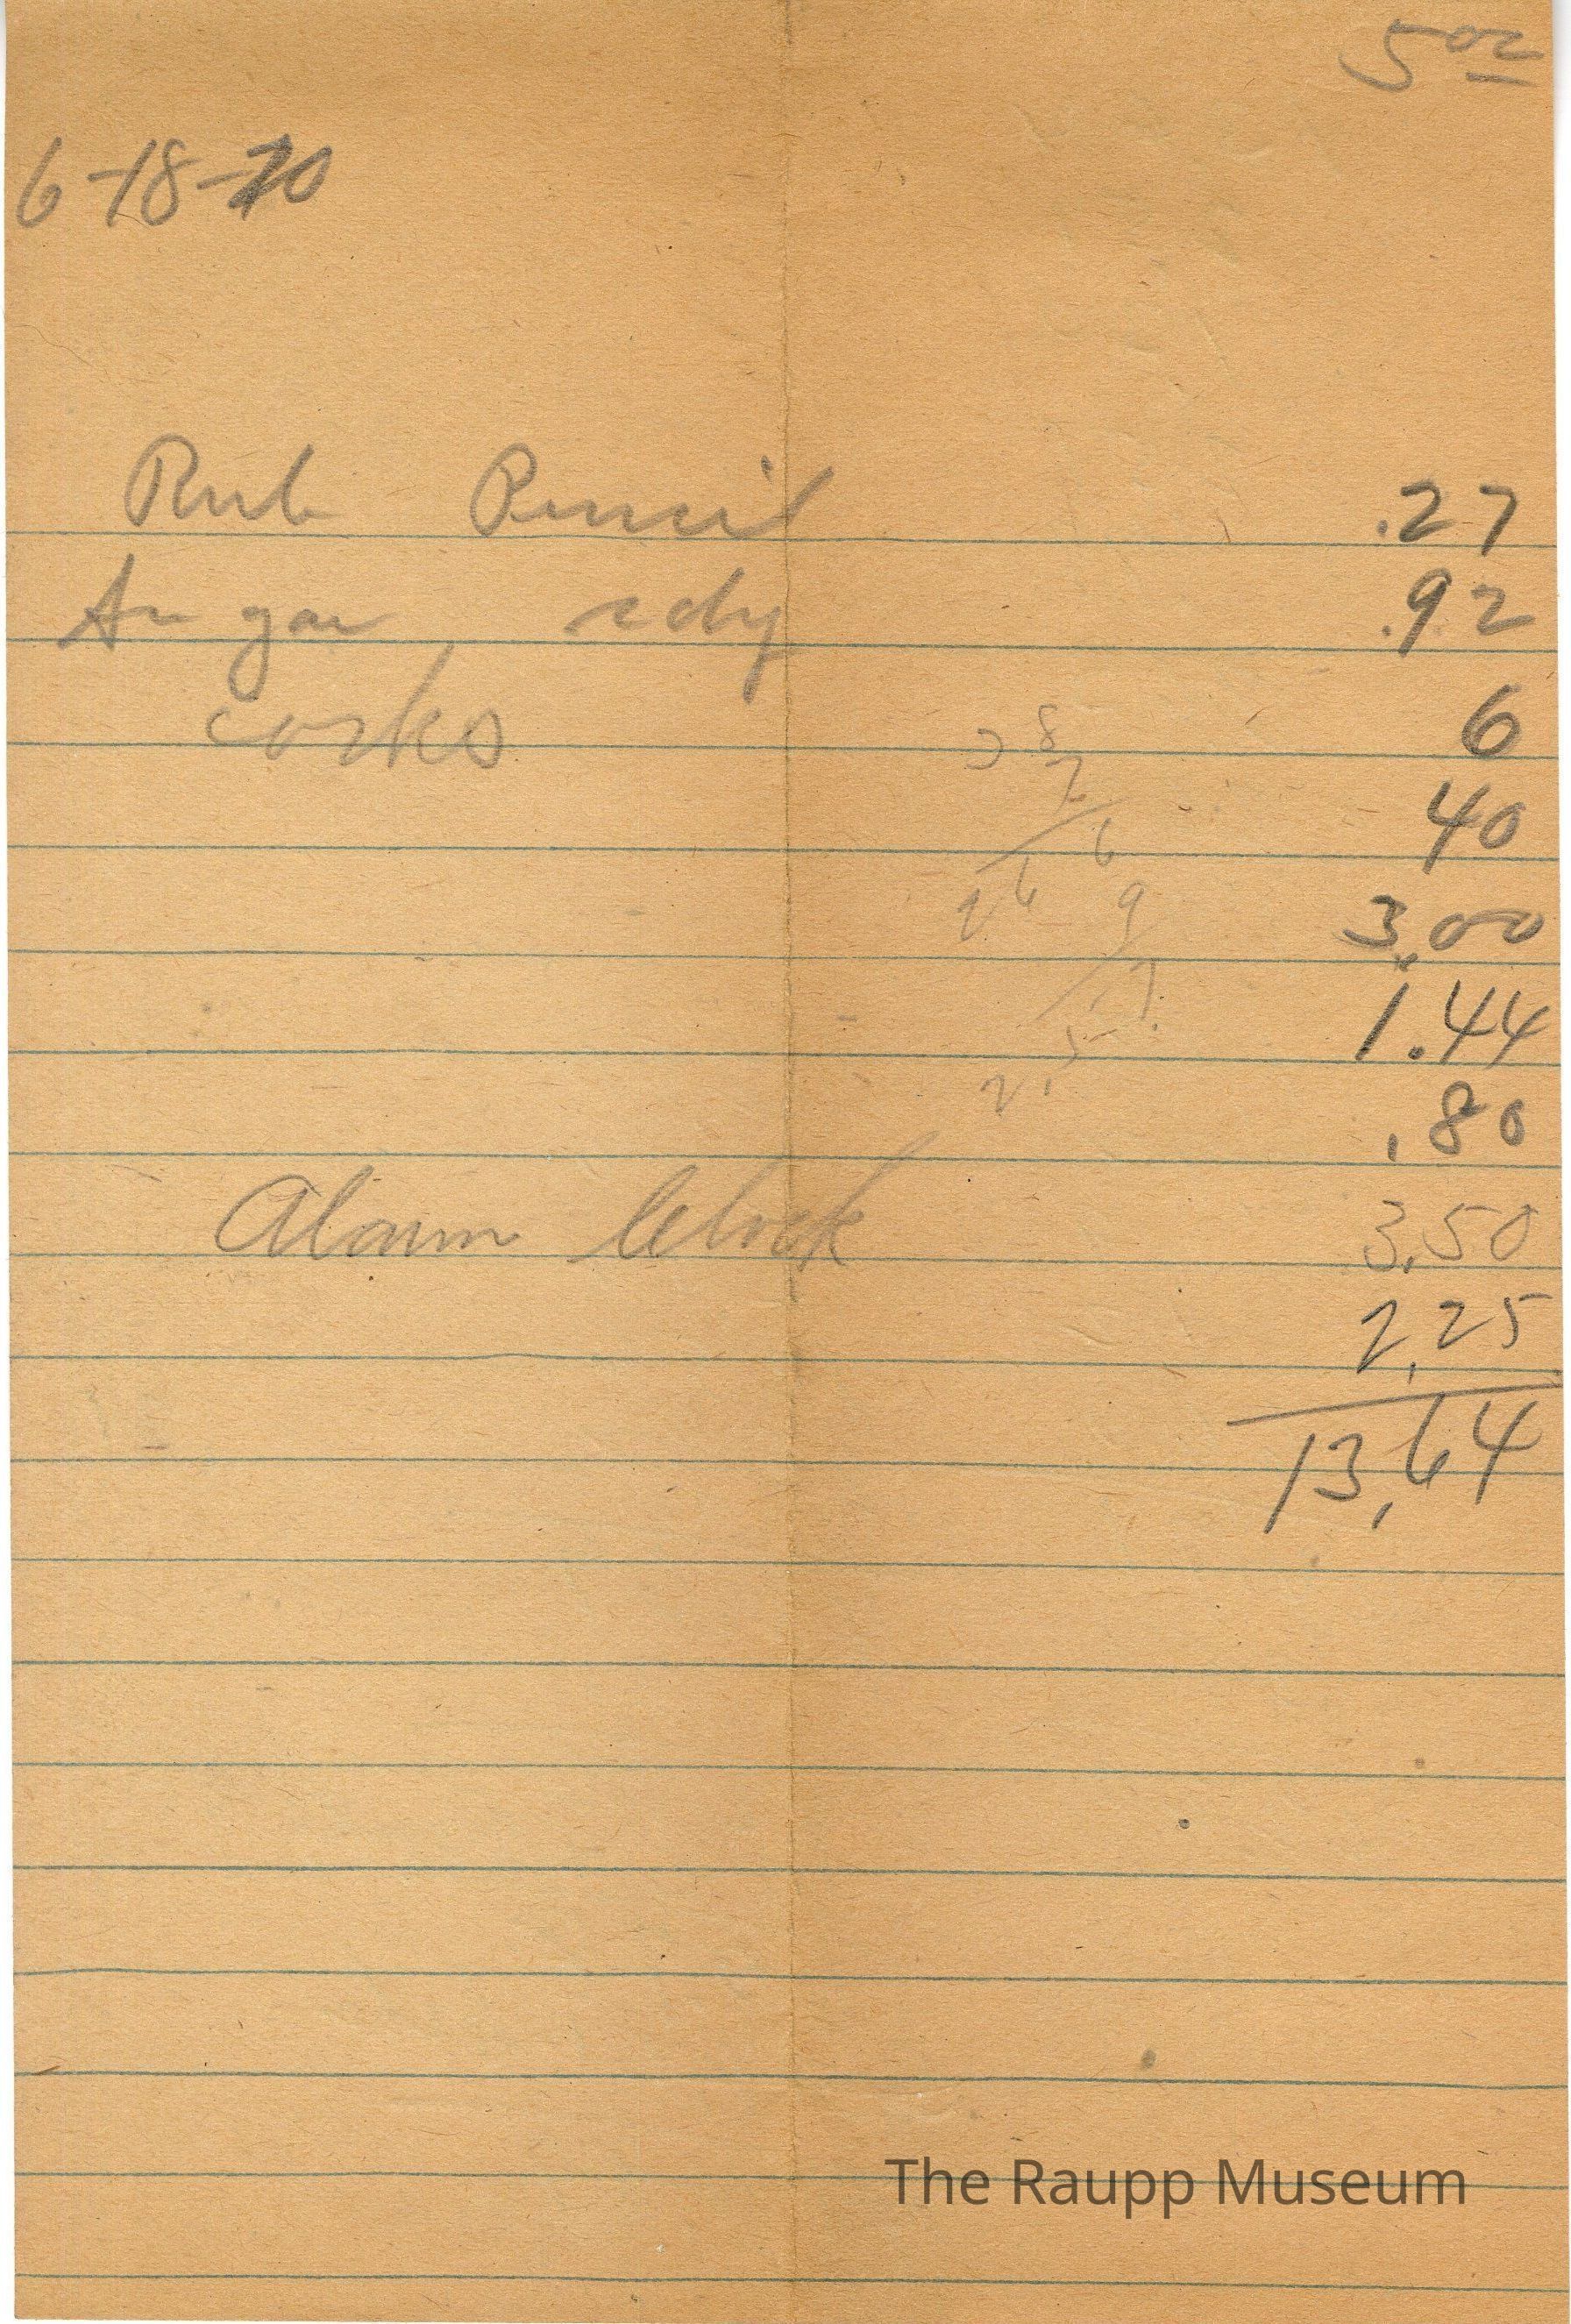 5 00
6-18-70
Rub Pencil .27
.92
corks 6
8
2
40
6
26
9
3.00
1.44
.80
Alarm Clock 3.50
2.25
13,64
The Raupp Museum